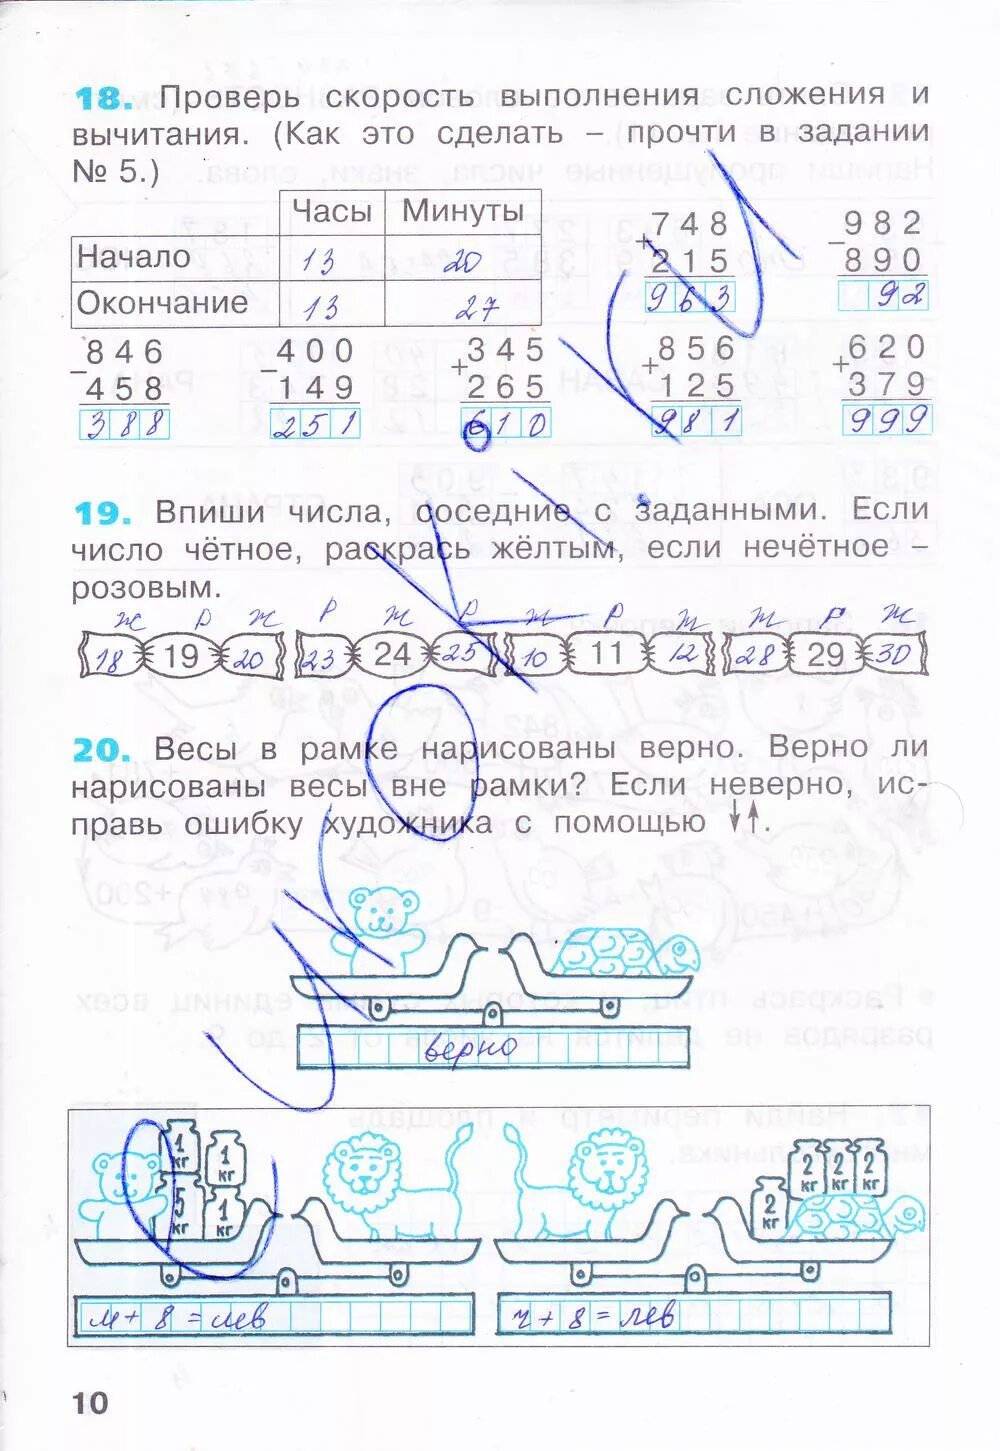 18. Проверь скорость выполнения сложения и
вычитания. (Как это сделать – прочти в задании
№ 5.)
Часы Минуты
Начало 13 20
Окончание 13 27
+748
215
963
−982
890
92
−846
458
388
−400
149
251
+345
265
610
+856
125
981
+620
379
999
19. Впиши числа, соседние с заданными. Если
число чётное, раскрась жёлтым, если нечётное –
розовым.
ж р ж р ж р ж р ж ж р ж
18 19 20 23 24 25 10 11 12 28 29 30
20. Весы в рамке нарисованы верно. Верно ли
нарисованы весы вне рамки? Если неверно, ис-
правь ошибку художника с помощью ↓↑.
верно
1 кг
1 кг
5 кг
1 кг
2 кг
2 кг
2 кг
2 кг
м + 8 = лев
ч + 8 = лев
10